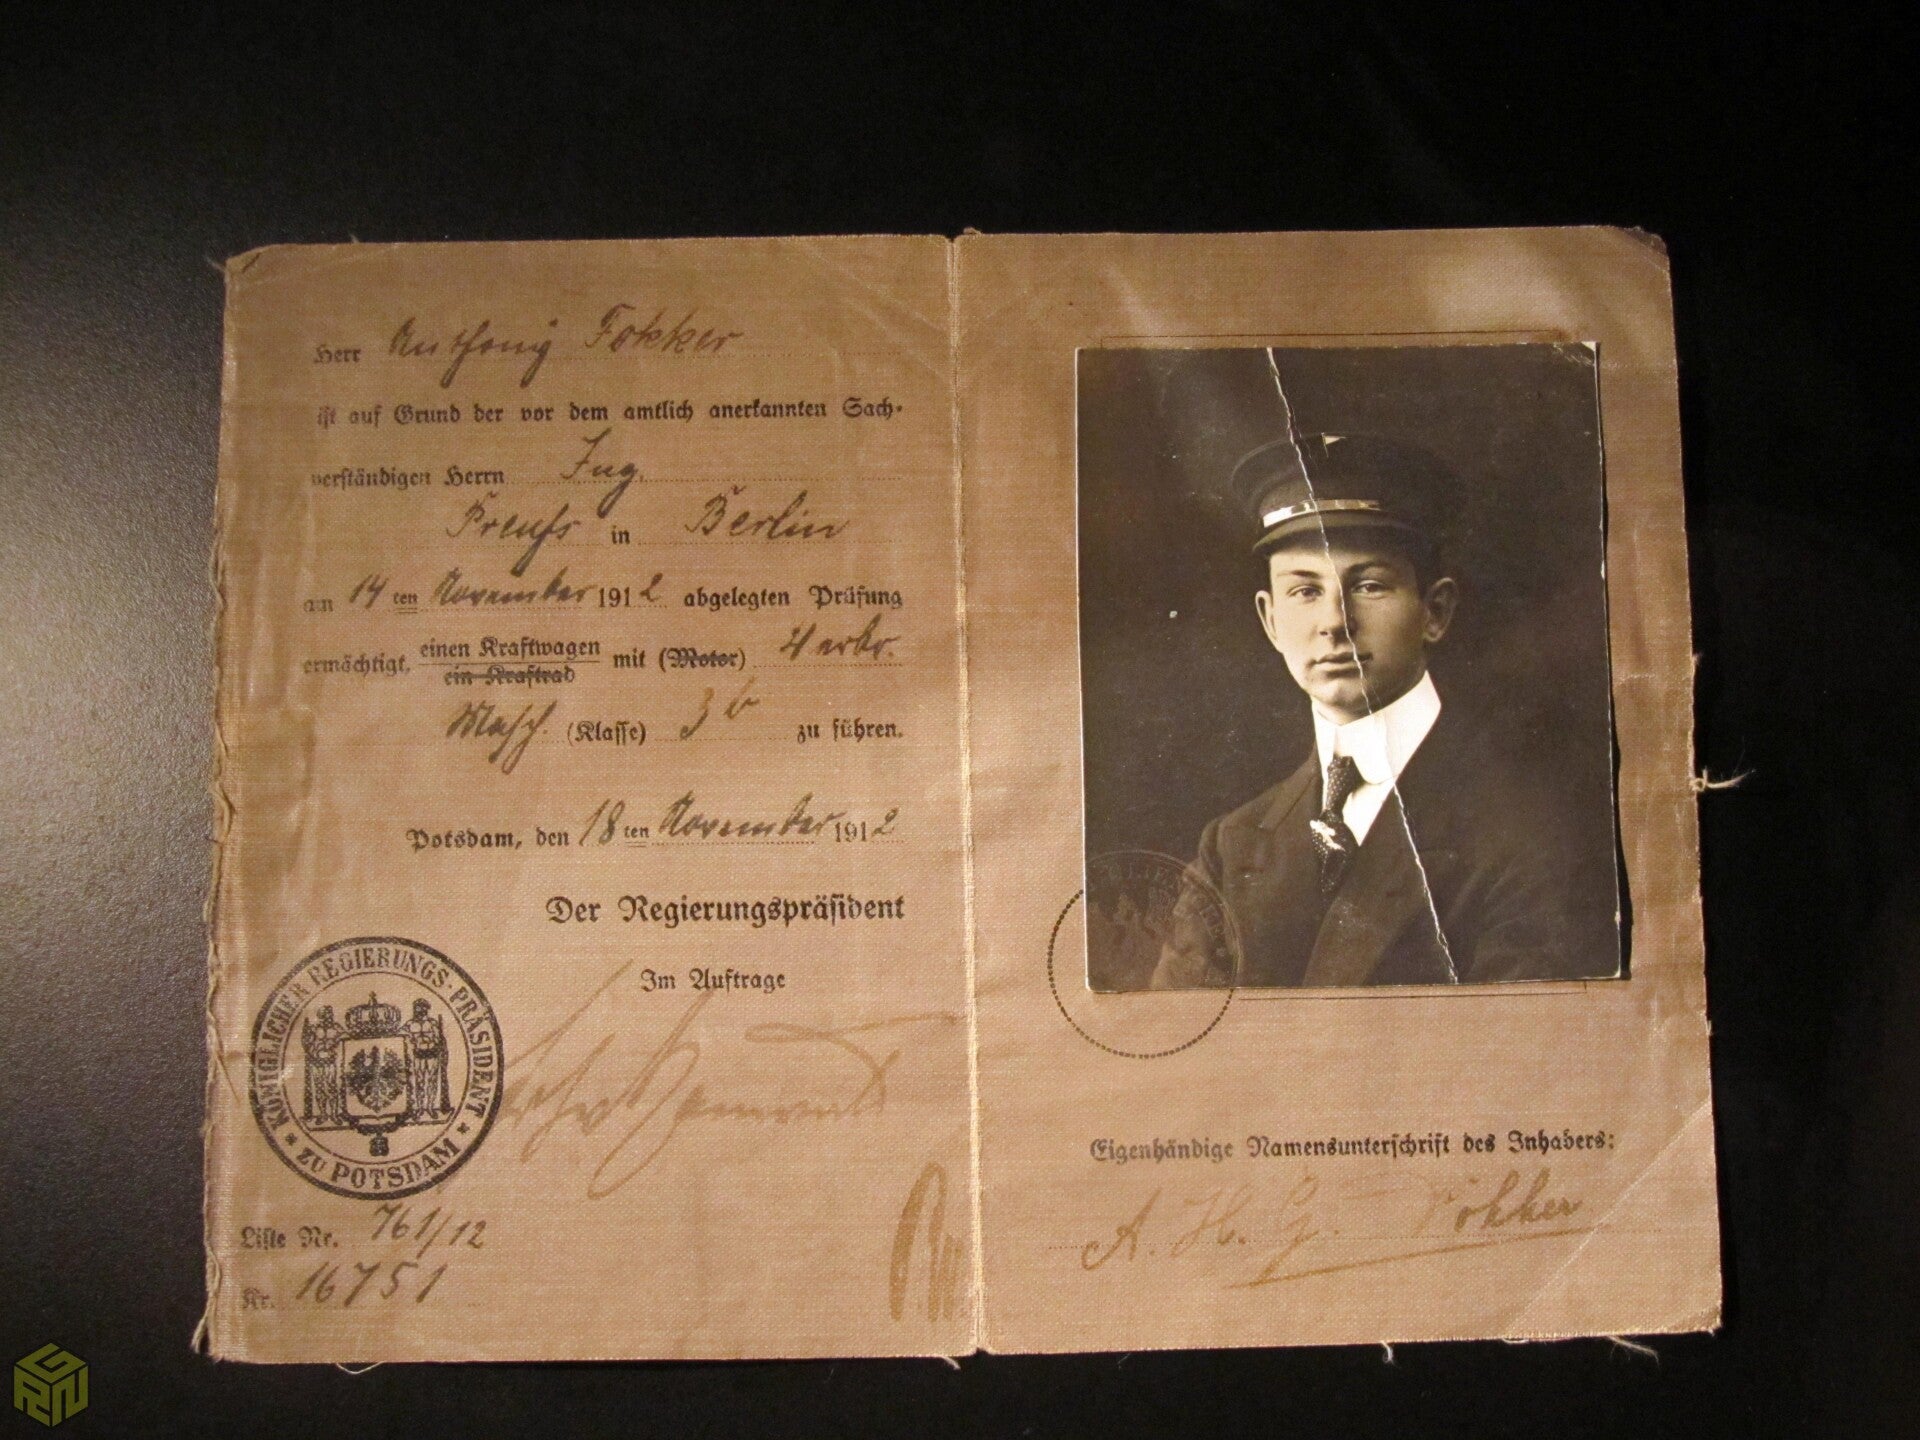 Herr Anthony Fokker
ist auf Grund der vor dem amtlich anerkannten Sach-
verständigen Herrn Ing.
Preuss in Berlin
am 14ten November 1912 abgelegten Prüfung
ermächtigt, einen Kraftwagen mit (Motor) 4 erbr.
ein Kraftrad
Masch. (Klasse) 3b zu führen.
Potsdam, den 18ten November 1912
Der Regierungspräsident
Im Auftrage
KÖNIGLICHER REGIERUNGS-PRÄSIDENT
* ZU POTSDAM *
Liste Nr. 761/12
Nr. 16751
Eigenhändige Namensunterschrift des Inhabers:
A. H. G. Fokker